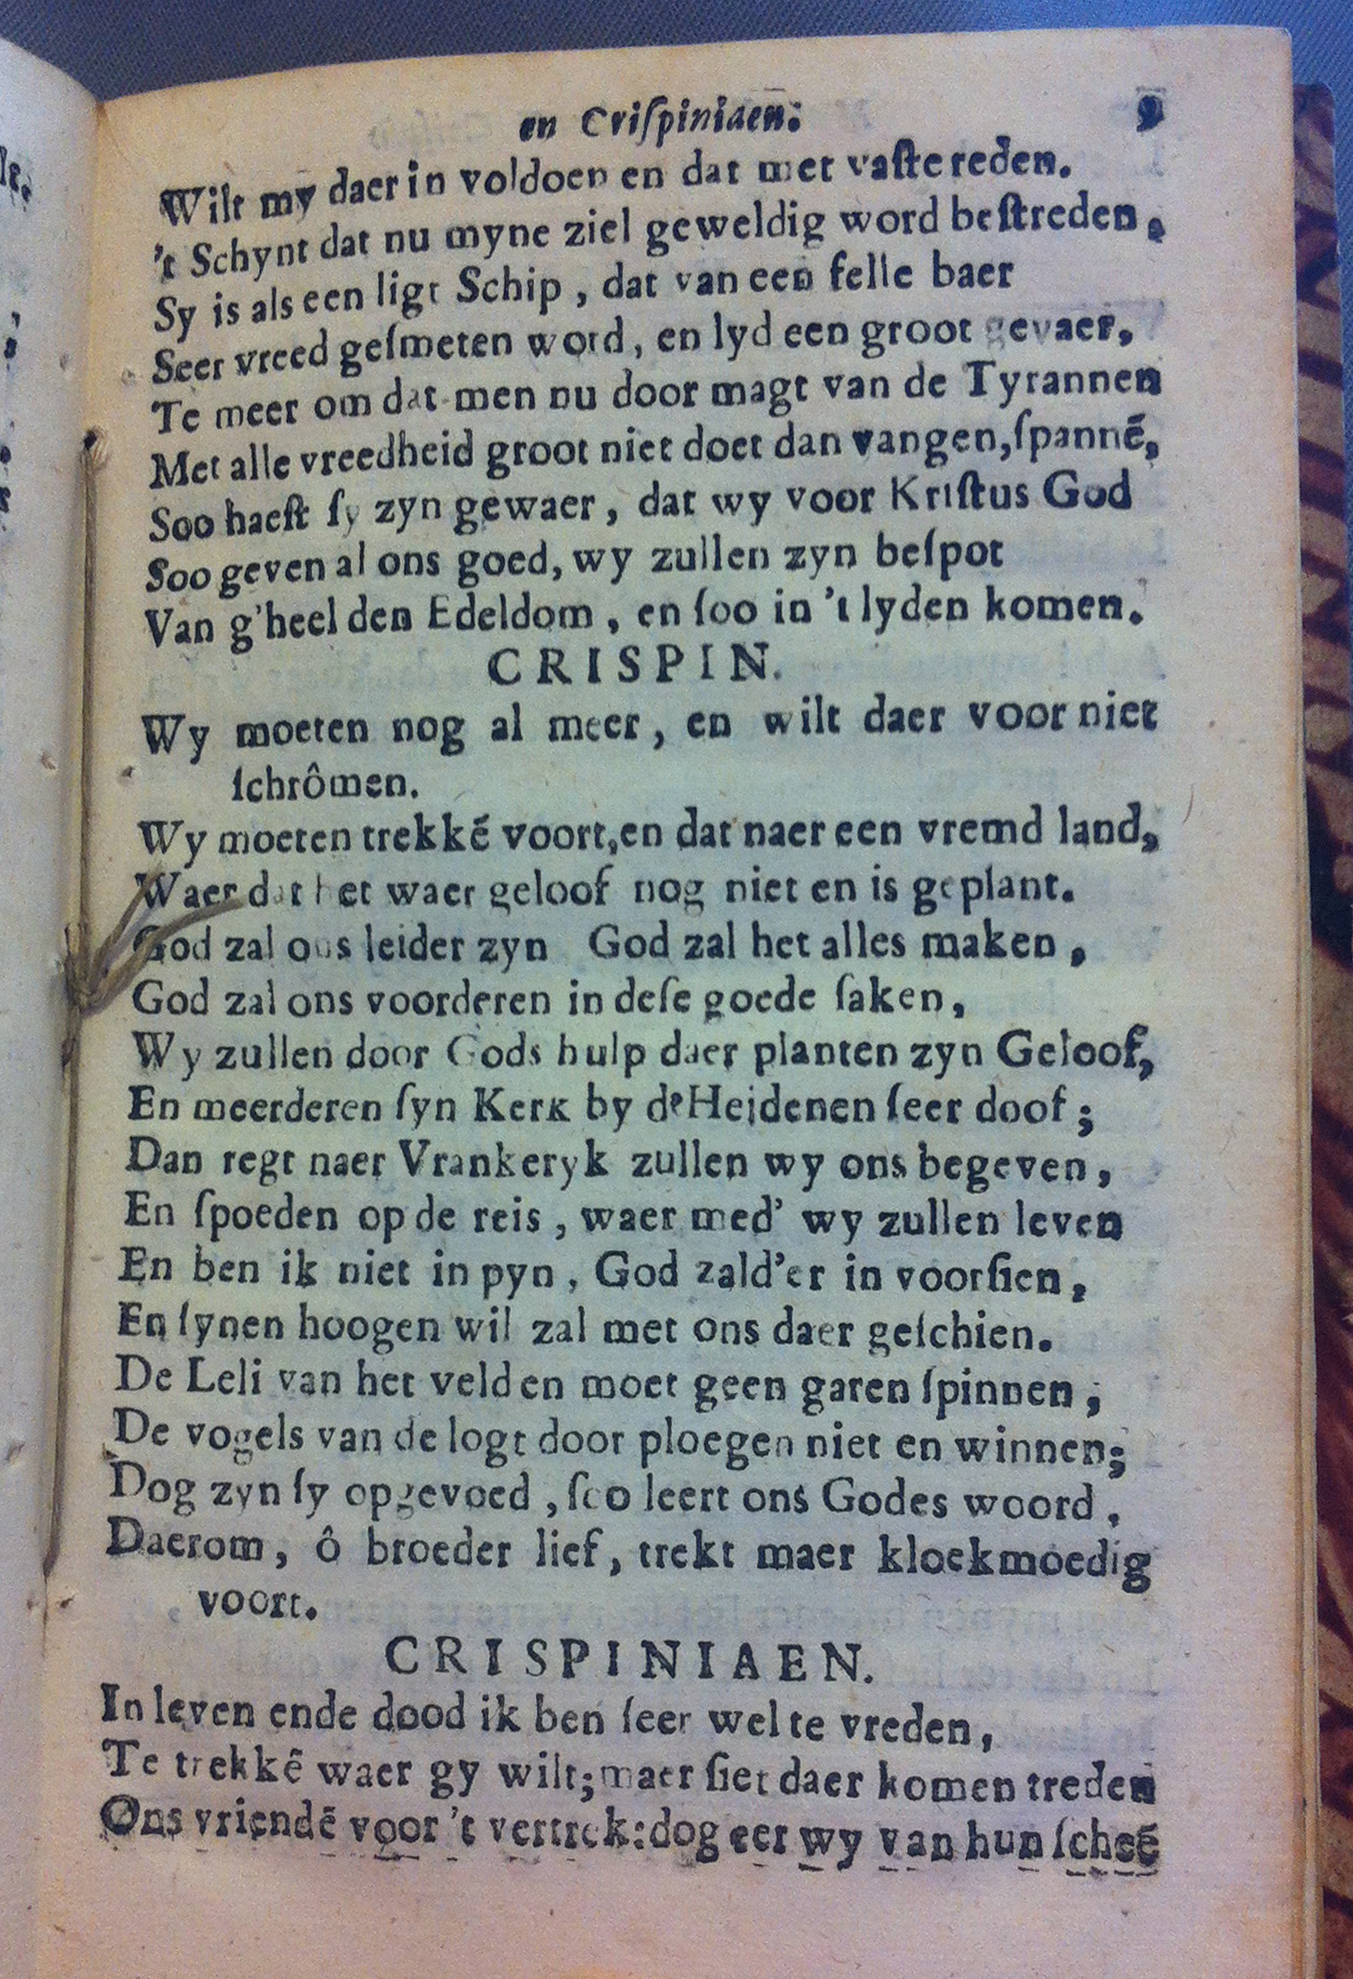 en Criſpiniaen. 9
Wilt my daer in voldoen en dat met vaſte reden.
't Schynt dat nu myne ziel geweldig word beſtreden,
Sy is als een ligt Schip, dat van een felle baer
Seer vreed geſmeten word, en lyd een groot gevaer,
Te meer om dat men nu door magt van de Tyrannen
Met alle vreedheid groot niet doet dan vangen, ſpannē,
Soo haeſt ſy zyn gewaer, dat wy voor Kriſtus God
Soo geven al ons goed, wy zullen zyn beſpot
Van g'heel den Edeldom, en ſoo in 't lyden komen.
CRISPIN.
Wy moeten nog al meer, en wilt daer voor niet
ſchrômen.
Wy moeten trekkē voort, en dat naer een vremd land,
Waer dat het waer geloof nog niet en is geplant.
God zal ons leider zyn God zal het alles maken,
God zal ons voorderen in deſe goede ſaken,
Wy zullen door Gods hulp daer planten zyn Geloof,
En meerderen ſyn Kerk by de Heidenen ſeer doof;
Dan regt naer Vrankeryk zullen wy ons begeven,
En ſpoeden op de reis, waer med' wy zullen leven
En ben ik niet in pyn, God zald'er in voorſien,
En ſynen hoogen wil zal met ons daer geſchien.
De Leli van het velden moet geen garen ſpinnen,
De vogels van de logt door ploegen niet en winnen;
Dog zyn ſy opgevoed, ſoo leert ons Godes woord,
Daerom, ô broeder lief, trekt maer kloekmoedig
voort.
CRISPINIAEN.
In leven ende dood ik ben ſeer wel te vreden,
Te trekkē waer gy wilt; maer ſiet daer komen treden
Ons vriendē voor 't vertrek: dog eer wy van hun ſcheē